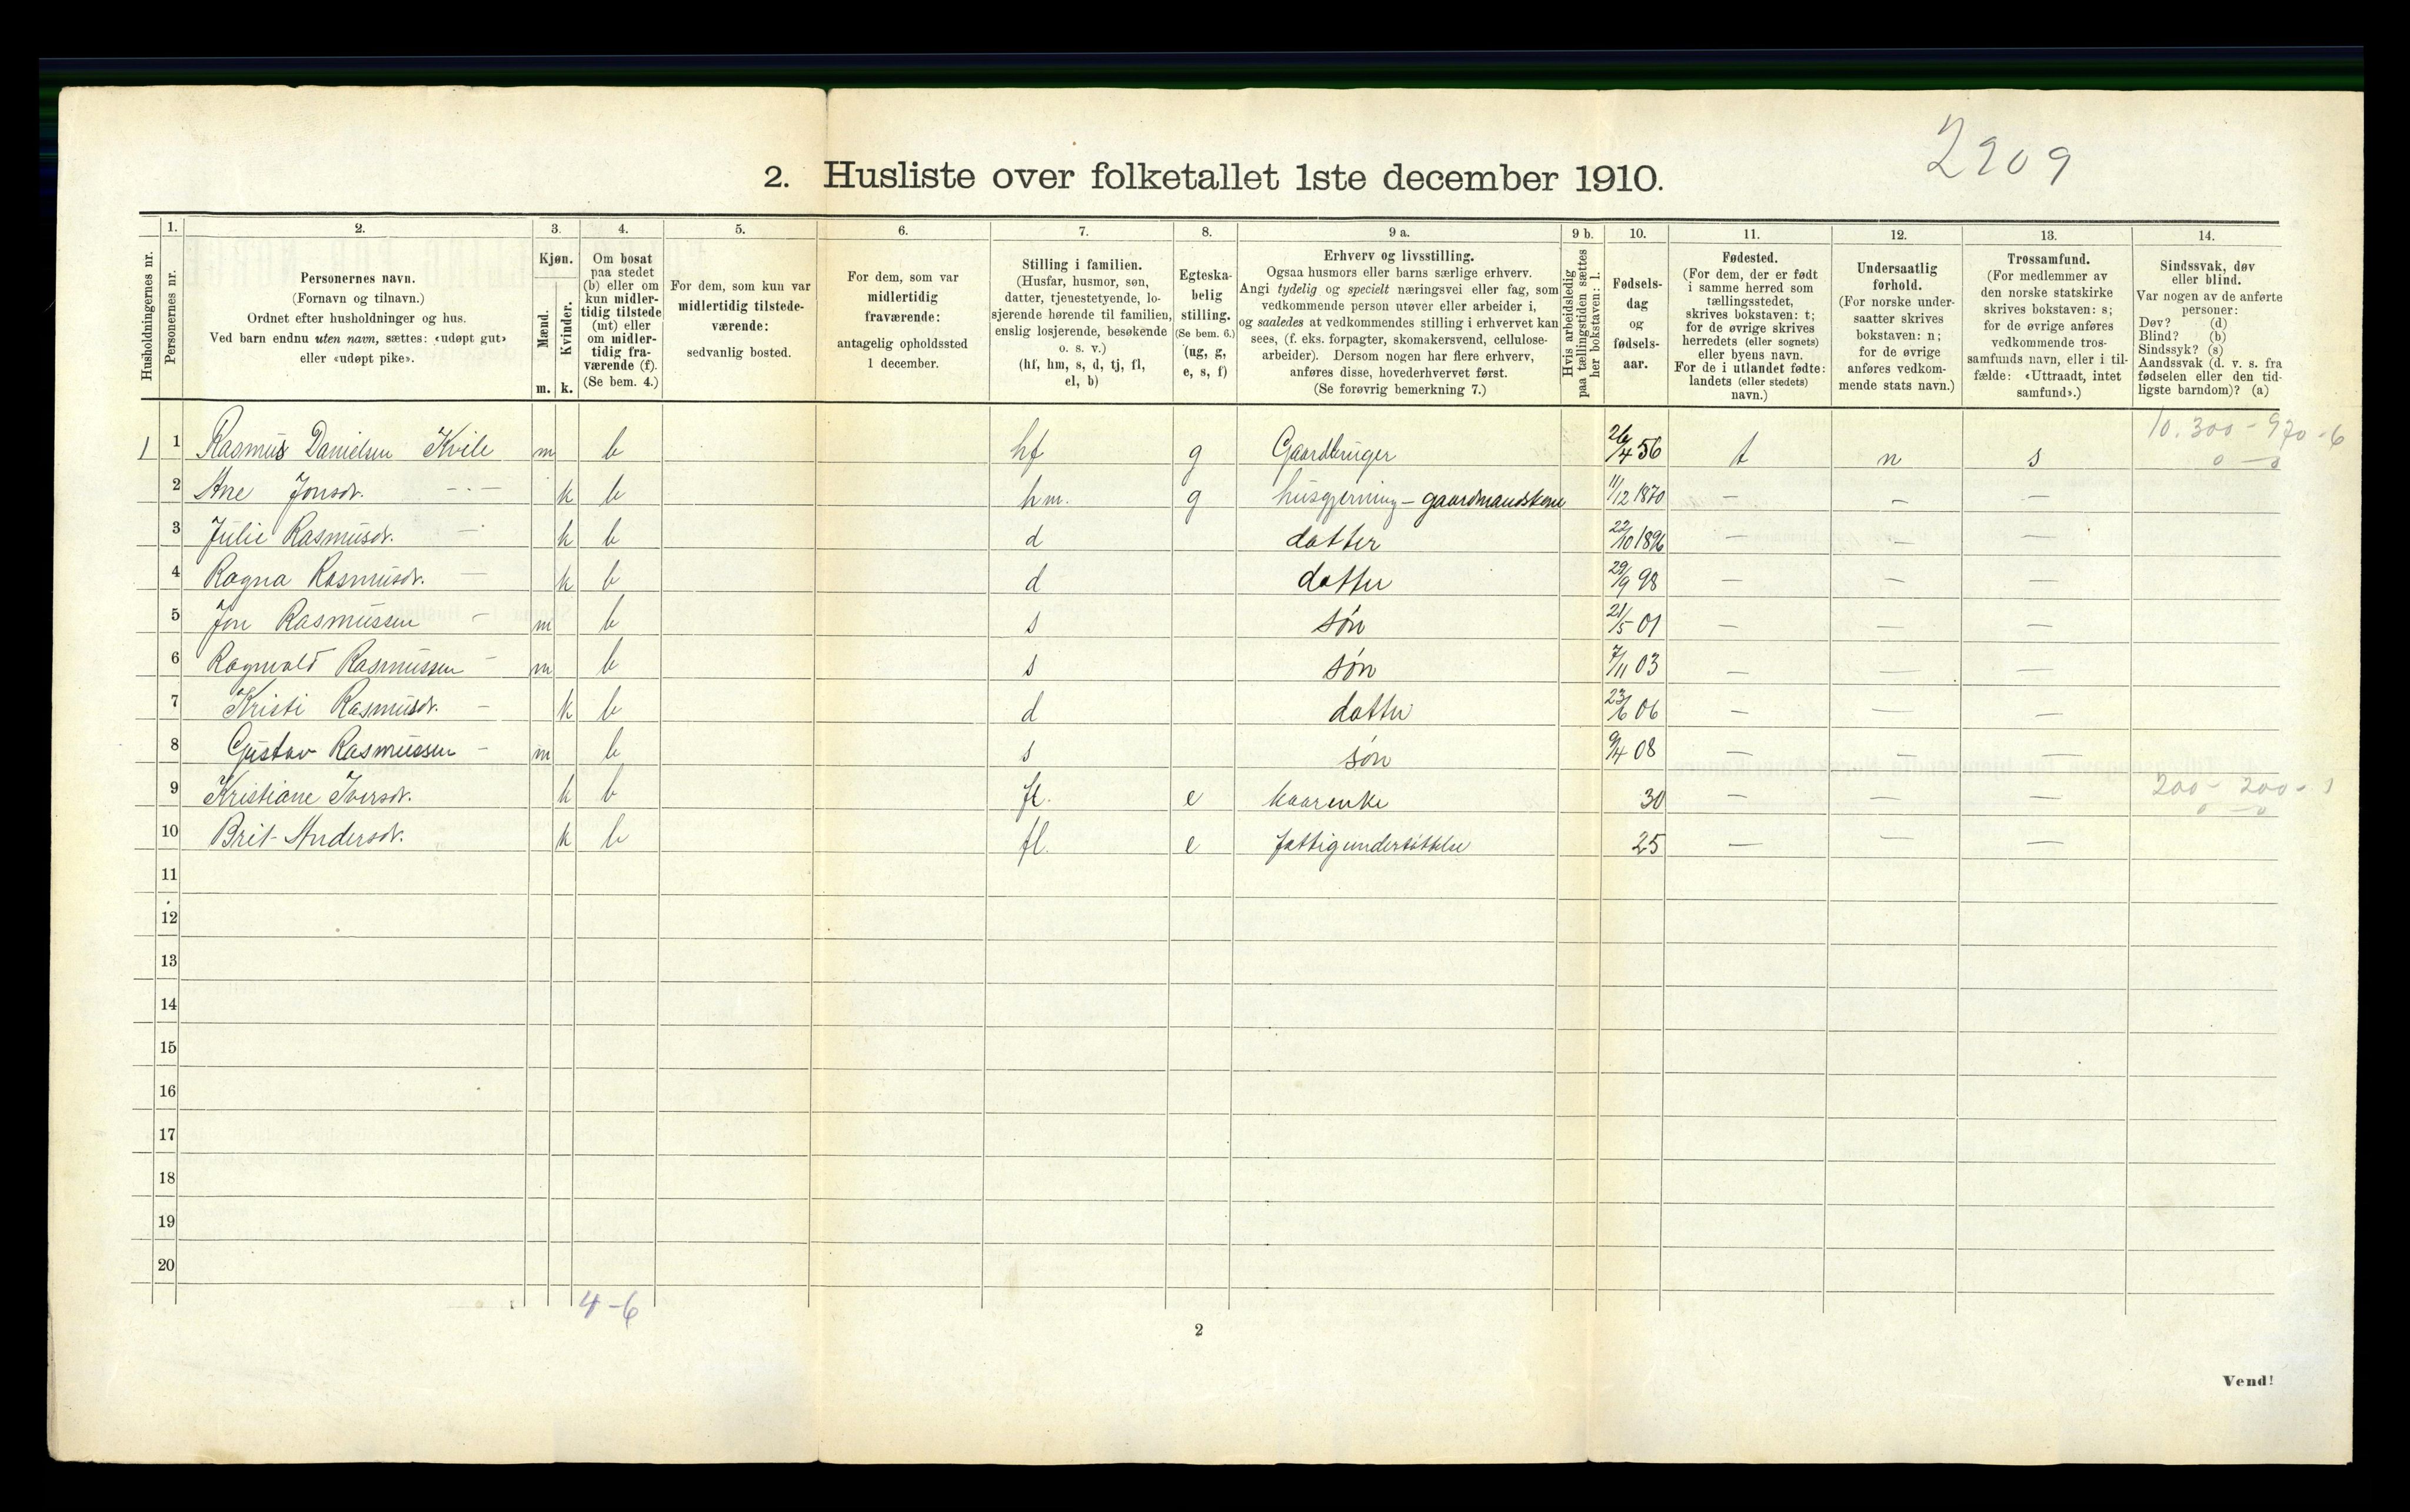 2909
2. Husliste over folketallet 1ste december 1910.
Husholdningernes nr.
1.
Personernes nr.
2.
Personernes navn.
(Fornavn og tilnavn.)
Ordnet efter husholdninger og hus.
Ved barn endnu uten navn, sættes: «udøpt gut»
eller «udøpt pike».
3.
Kjøn.
Mænd.
Kvinder.
m. k.
4.
Om bosat
paa stedet
(b) eller om
kun midler-
tidig tilstede
(mt) eller
om midler-
tidig fra-
værende (f).
(Se bem. 4.)
5.
For dem, som kun var
midlertidig tilstede-
værende:
sedvanlig bosted.
6.
For dem, som var
midlertidig
fraværende:
antagelig opholdssted
1 december.
7.
Stilling i familien.
(Husfar, husmor, søn,
datter, tjenestetyende, lo-
sjerende hørende til familien,
enslig losjerende, besøkende
o. s. v.)
(hf, hm, s, d, tj, fl,
el, b)
8.
Egteska-
belig
stilling.
(Se bem. 6.)
(ug, g,
e, s, f)
9 a.
Erhverv og livsstilling.
Ogsaa husmors eller barns særlige erhverv.
Angi tydelig og specielt næringsvei eller fag, som
vedkommende person utøver eller arbeider i,
og saaledes at vedkommendes stilling i erhvervet kan
sees, (f. eks. forpagter, skomakersvend, cellulose-
arbeider). Dersom nogen har flere erhverv,
anføres disse, hovederhvervet først.
(Se forøvrig bemerkning 7.)
9 b.
Hvis arbeidsledig
paa tællingstiden sættes
her bokstaven: l.
10.
Fødsels-
dag
og
fødsels-
aar.
11.
Fødested.
(For dem, der er født
i samme herred som
tællingsstedet,
skrives bokstaven: t;
for de øvrige skrives
herredets (eller sognets)
eller byens navn.
For de i utlandet fødte:
landets (eller stedets)
navn.)
12.
Undersaatlig
forhold.
(For norske under-
saatter skrives
bokstaven: n;
for de øvrige
anføres vedkom-
mende stats navn.)
13.
Trossamfund.
(For medlemmer av
den norske statskirke
skrives bokstaven: s;
for de øvrige anføres
vedkommende tros-
samfunds navn, eller i til-
fælde: «Uttraadt, intet
samfund».)
14.
Sindssvak, døv
eller blind.
Var nogen av de anførte
personer:
Døv? (d)
Blind? (b)
Sindssyk? (s)
Aandssvak (d. v. s. fra
fødselen eller den tid-
ligste barndom)? (a)
10.300 - 970 - 6
1 1 Rasmus Danielsen Kvile m b hf g Gaardbruger 26/4 56 t n s 0 - 0
2 Ane Jonsdr. - - - k b hm. g husgjerning - gaardmandskone 11/12 1870 - - -
3 Julie Rasmusdr. - k b d datter 22/10 1896 - - -
4 Ragna Rasmusdr. - k b d datter 29/9 98 - - -
5 Jon Rasmussen - m b s søn 21/5 01 - - -
6 Ragnvald Rasmussen - m b s søn 7/11 03 - - -
7 Kristi Rasmusdr. - k b d datter 23/6 06 - - -
8 Gustav Rasmussen - m b s søn 9/4 08 - - -
9 Kristiane Iversdr. k b fl. e kaarenke 30 - - - 200 - 200 - 1
0 - 0
10 Brit Andersdr. k b fl. e fattigunderstøttelse 25 - - -
11
12
13
14
15
16
17
18
19
20
4 - 6
2
Vend!